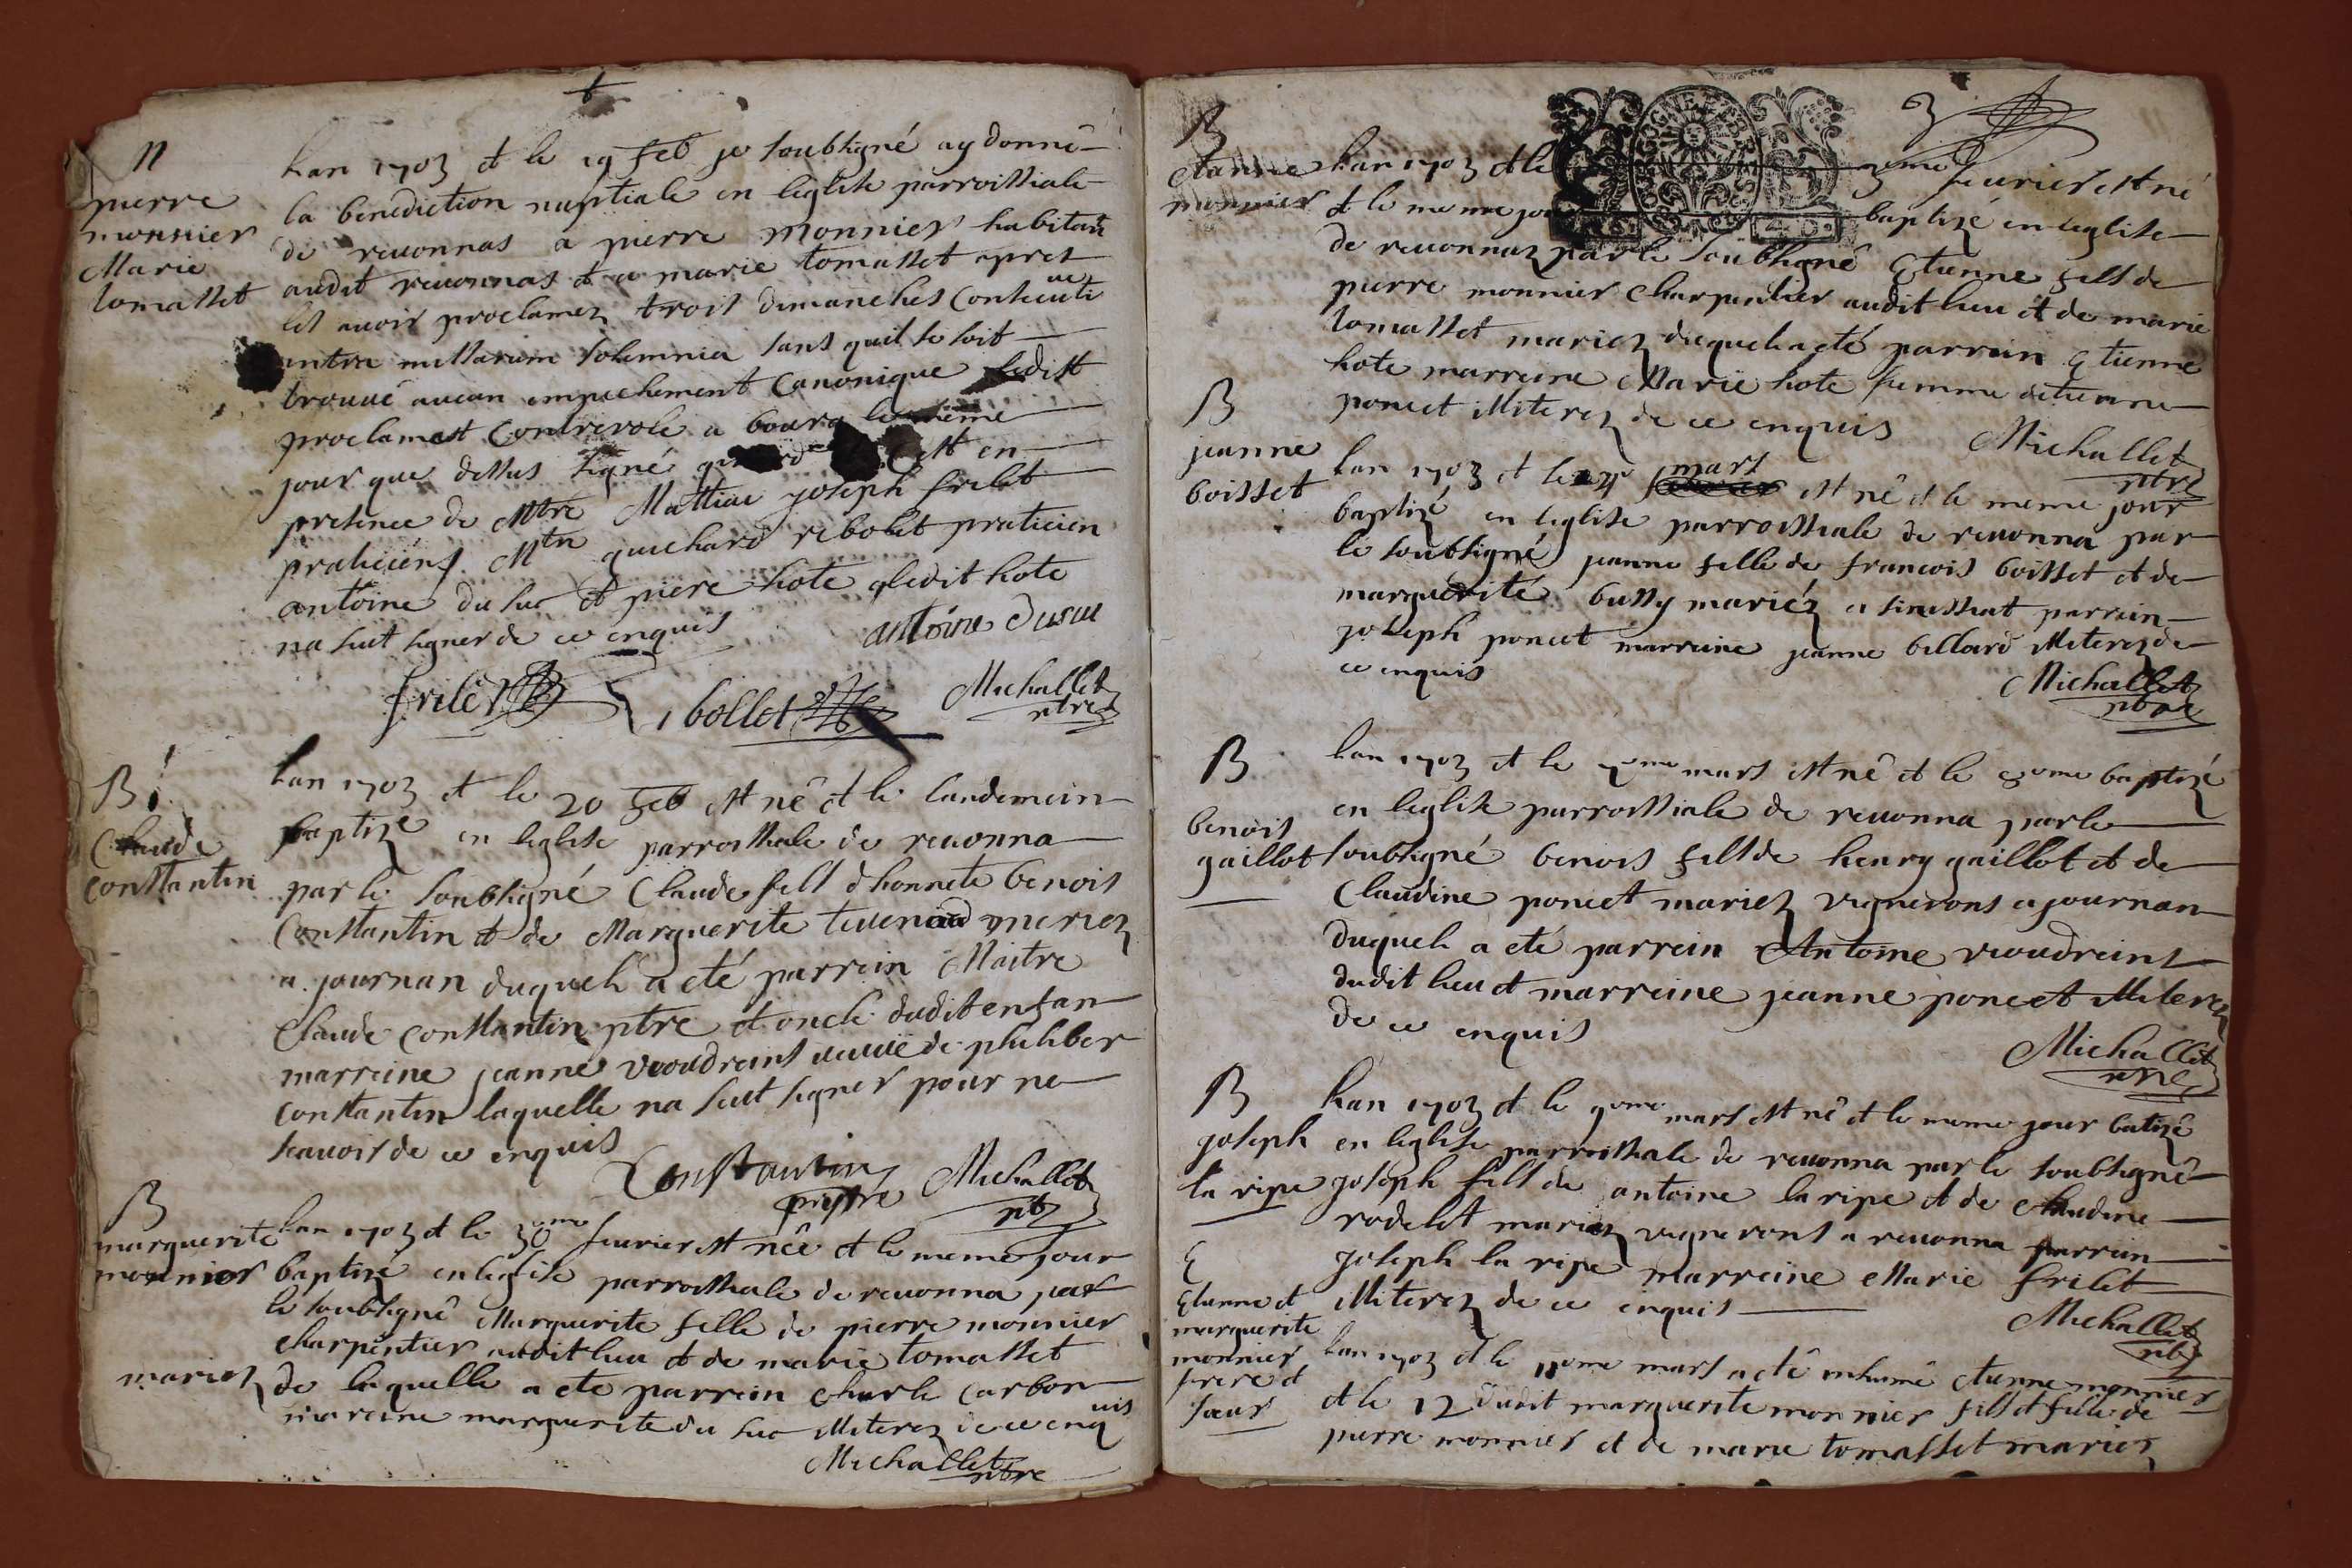 n
pierre
monnier
Marie
tomasset
Lan 1703 et le 19 feb je soubsigné ay donné
la benediction nuptiale en leglise parroissiale
de reuonnas a pierre monnier habitant
audit reuonnas et a marie tomasset apres
les auoir proclamez trois dimanches consecutiues
intra missarum solemnia sans quil se soit
trouué aucun empechement canonique
proclamest controrole a bourg le meme
jour que dessus signé est en
presence de Mtre Mattiae joseph frilet
praticiens Mtre guichard rebolet praticien
antoine du suc et piere hote qledit hote
na sceut signer de ce enquis
antoine dusuc
frilet
bollet
Michallet
ptre
B
Claude
constantin
Lan 1703 et le 20 feb est né et le landemein
baptizé en leglise parroissiale de reuonna
par le soubsigné Claude fils dhonnete benois
Constantin et de Marguerite teuenard mariez
a journan duquel a eté parrein Maitre
Claude constantin ptre et oncle dudit enfan
marreine jeanne voudreins ueuue de philiber
constantin laquelle na sceut signer pour ne
scauoir de ce enquis
Constantin
prestre
Michallet
ptre
B
marguerite
monnier
Lan 1703 et le 3eme feurier est née et le meme jour
baptizé en leglise parroissiale de reuonna par
le soubsigné Marguerite fille de pierre monnier
charpentier audit lieu et de marie tomasset
mariez de laquelle a ete parrein charle carbon
mareine marguerite du suc illiterez de ce enquis
Michallet
ptre
3
B
etienne
monnier
Lan 1703 et le 3eme feurier est né
et le meme jour baptizé en leglise
de reuonnaz par le soubsigné Etienne fils de
pierre monnier charpentier audit lieu et de marie
tomasset mariez duquel a eté parrein Etienne
hote marreine Marie hote femme detienne
poncet illiterez de ce enquis
Michallet
ptre
B
jeanne
boisset
Lan 1703 et le mars est né et le meme jour
baptizé en leglise parroissiale de reuonna par
le soubsigné jeanne fille de francois boisset et de
marguerité bussy mariéz a simissiat parrein
joseph poncet marreine jeanne billard illiterez de
ce enquis
Michallet
ptre
B
benois
gaillot
Lan 1703 et le 7eme mars est né et le 8eme baptizé
en leglise parroissiale de reuonna par le
soubsigné benois fils de henry gaillot et de
Claudine poncet mariez vignerons a journan
duquel a eté parrein Antoine voudreins
dudit lieu et marreine jeanne poncet illiterez
de ce enquis
Michallet
ptre
B
joseph
la ripe
Lan 1703 et le 9eme mars est né et le meme jour batizé
en leglise parroissiale de reuonna par le soubsigné
joseph fils de antoine la ripe et de Claudine
rodelet mariez vignerons a reuonna parrein
joseph la ripe marreine Marie frilet
illiterez de ce enquis
Michallet
ptre
E
Etienne et
marguerite
monnier
frere et
soeur
Lan 1703 et le 11eme mars a eté inhumé etienne monnier
et le 12 dudit marguerite monnier fils et fille de
pierre monnier et de marie tomasset mariez